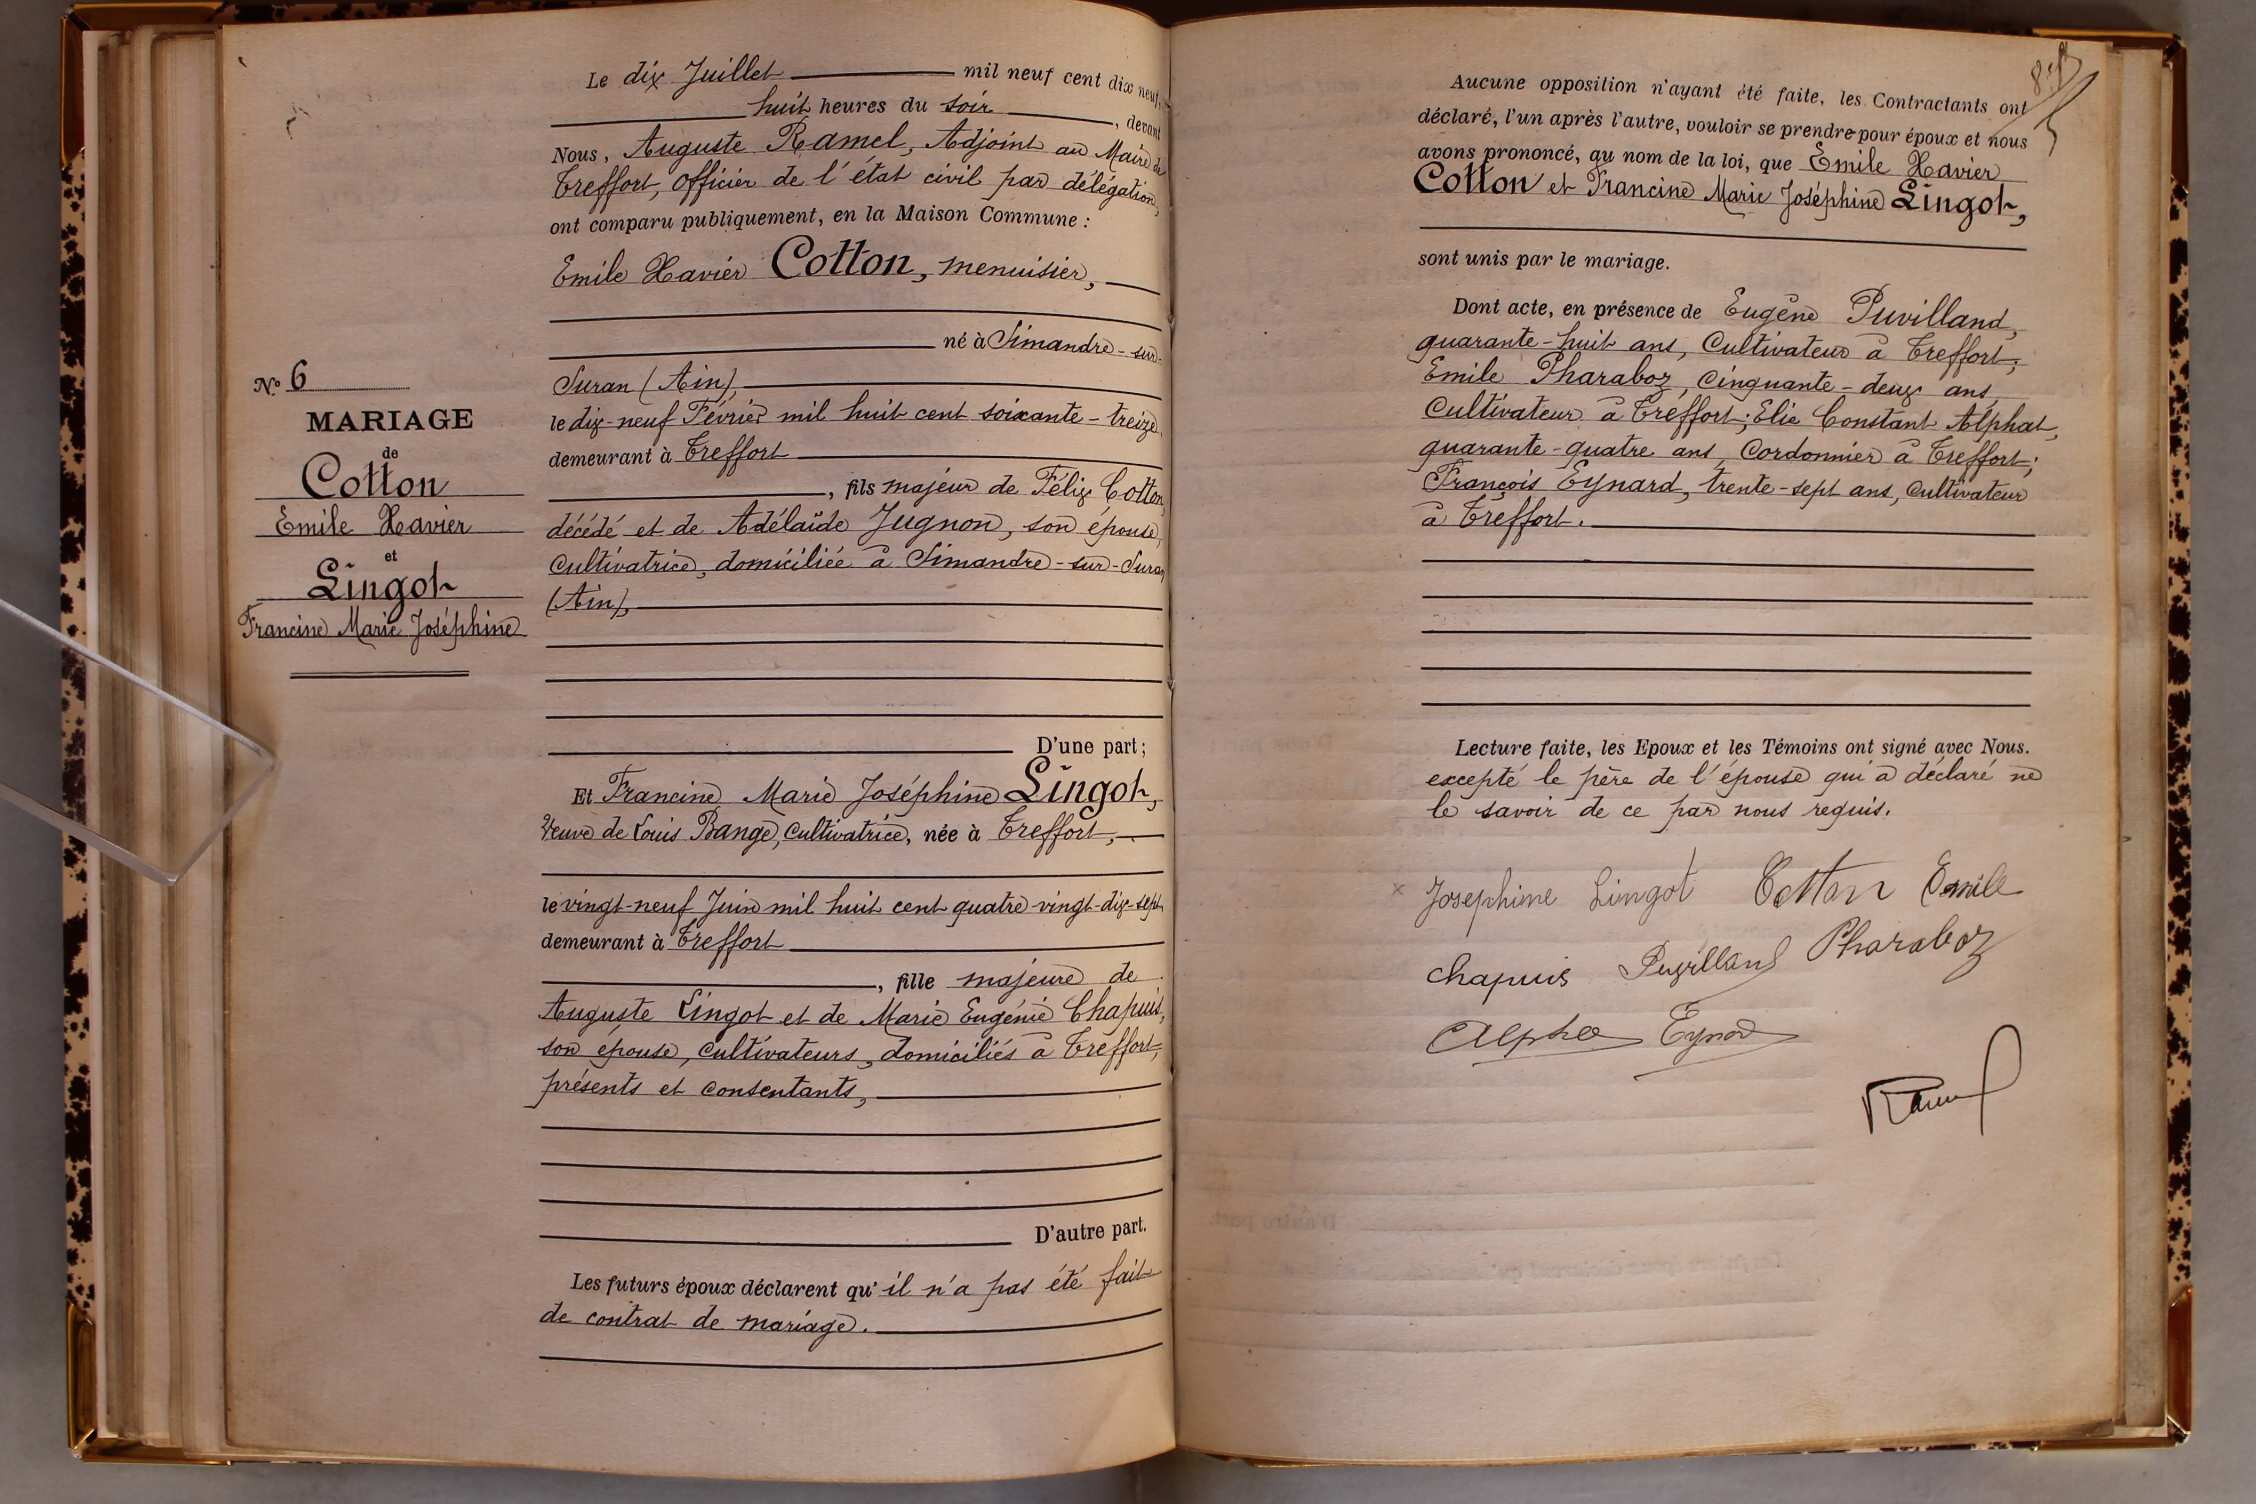 N° 6
MARIAGE
de
Cotton
Emile Xavier
et
Lingot
Francine Marie Joséphine
Le dix Juillet mil neuf cent dix neuf,
huit heures du soir, devant
Nous, Auguste Ramel, Adjoint au Maire de
Treffort, officier de l'état civil par délégation,
ont comparu publiquement, en la Maison Commune :
Emile Xavier Cotton, menuisier,
né à Simandre-sur-
Suran (Ain)
le dix-neuf Février mil huit cent soixante-treize,
demeurant à Treffort
, fils majeur de Félix Cotton,
décédé et de Adélaïde Jugnon, son épouse,
cultivatrice, domiciliée à Simandre-sur-Suran
(Ain),
D'une part ;
Et Francine Marie Joséphine Lingot,
Veuve de Louis Bange, cultivatrice, née à Treffort,
le vingt-neuf Juin mil huit cent quatre-vingt-dix-sept,
demeurant à Treffort
, fille majeure de
Auguste Lingot et de Marie Eugénie Chapuis,
son épouse, cultivateurs, domiciliés à Treffort,
présents et consentants,
D'autre part.
Les futurs époux déclarent qu'il n'a pas été fait
de contrat de mariage.
Aucune opposition n'ayant été faite, les Contractants ont
déclaré, l'un après l'autre, vouloir se prendre pour époux et nous
avons prononcé, au nom de la loi, que Emile Xavier
Cotton et Francine Marie Joséphine Lingot,
sont unis par le mariage.
Dont acte, en présence de Eugène Puvilland,
quarante-huit ans, Cultivateur à Treffort;
Emile Pharaboz, cinquante-deux ans,
Cultivateur à Treffort; Elie Constant Alphat,
quarante-quatre ans, Cordonnier à Treffort;
François Eynard, trente-sept ans, cultivateur
à Treffort.
Lecture faite, les Epoux et les Témoins ont signé avec Nous.
excepté le père de l'épouse qui a déclaré ne
le savoir de ce par nous requis.
x Josephine Lingot Cotton Emile
Chapuis Puvilland Pharaboz
Eynard
Ramel